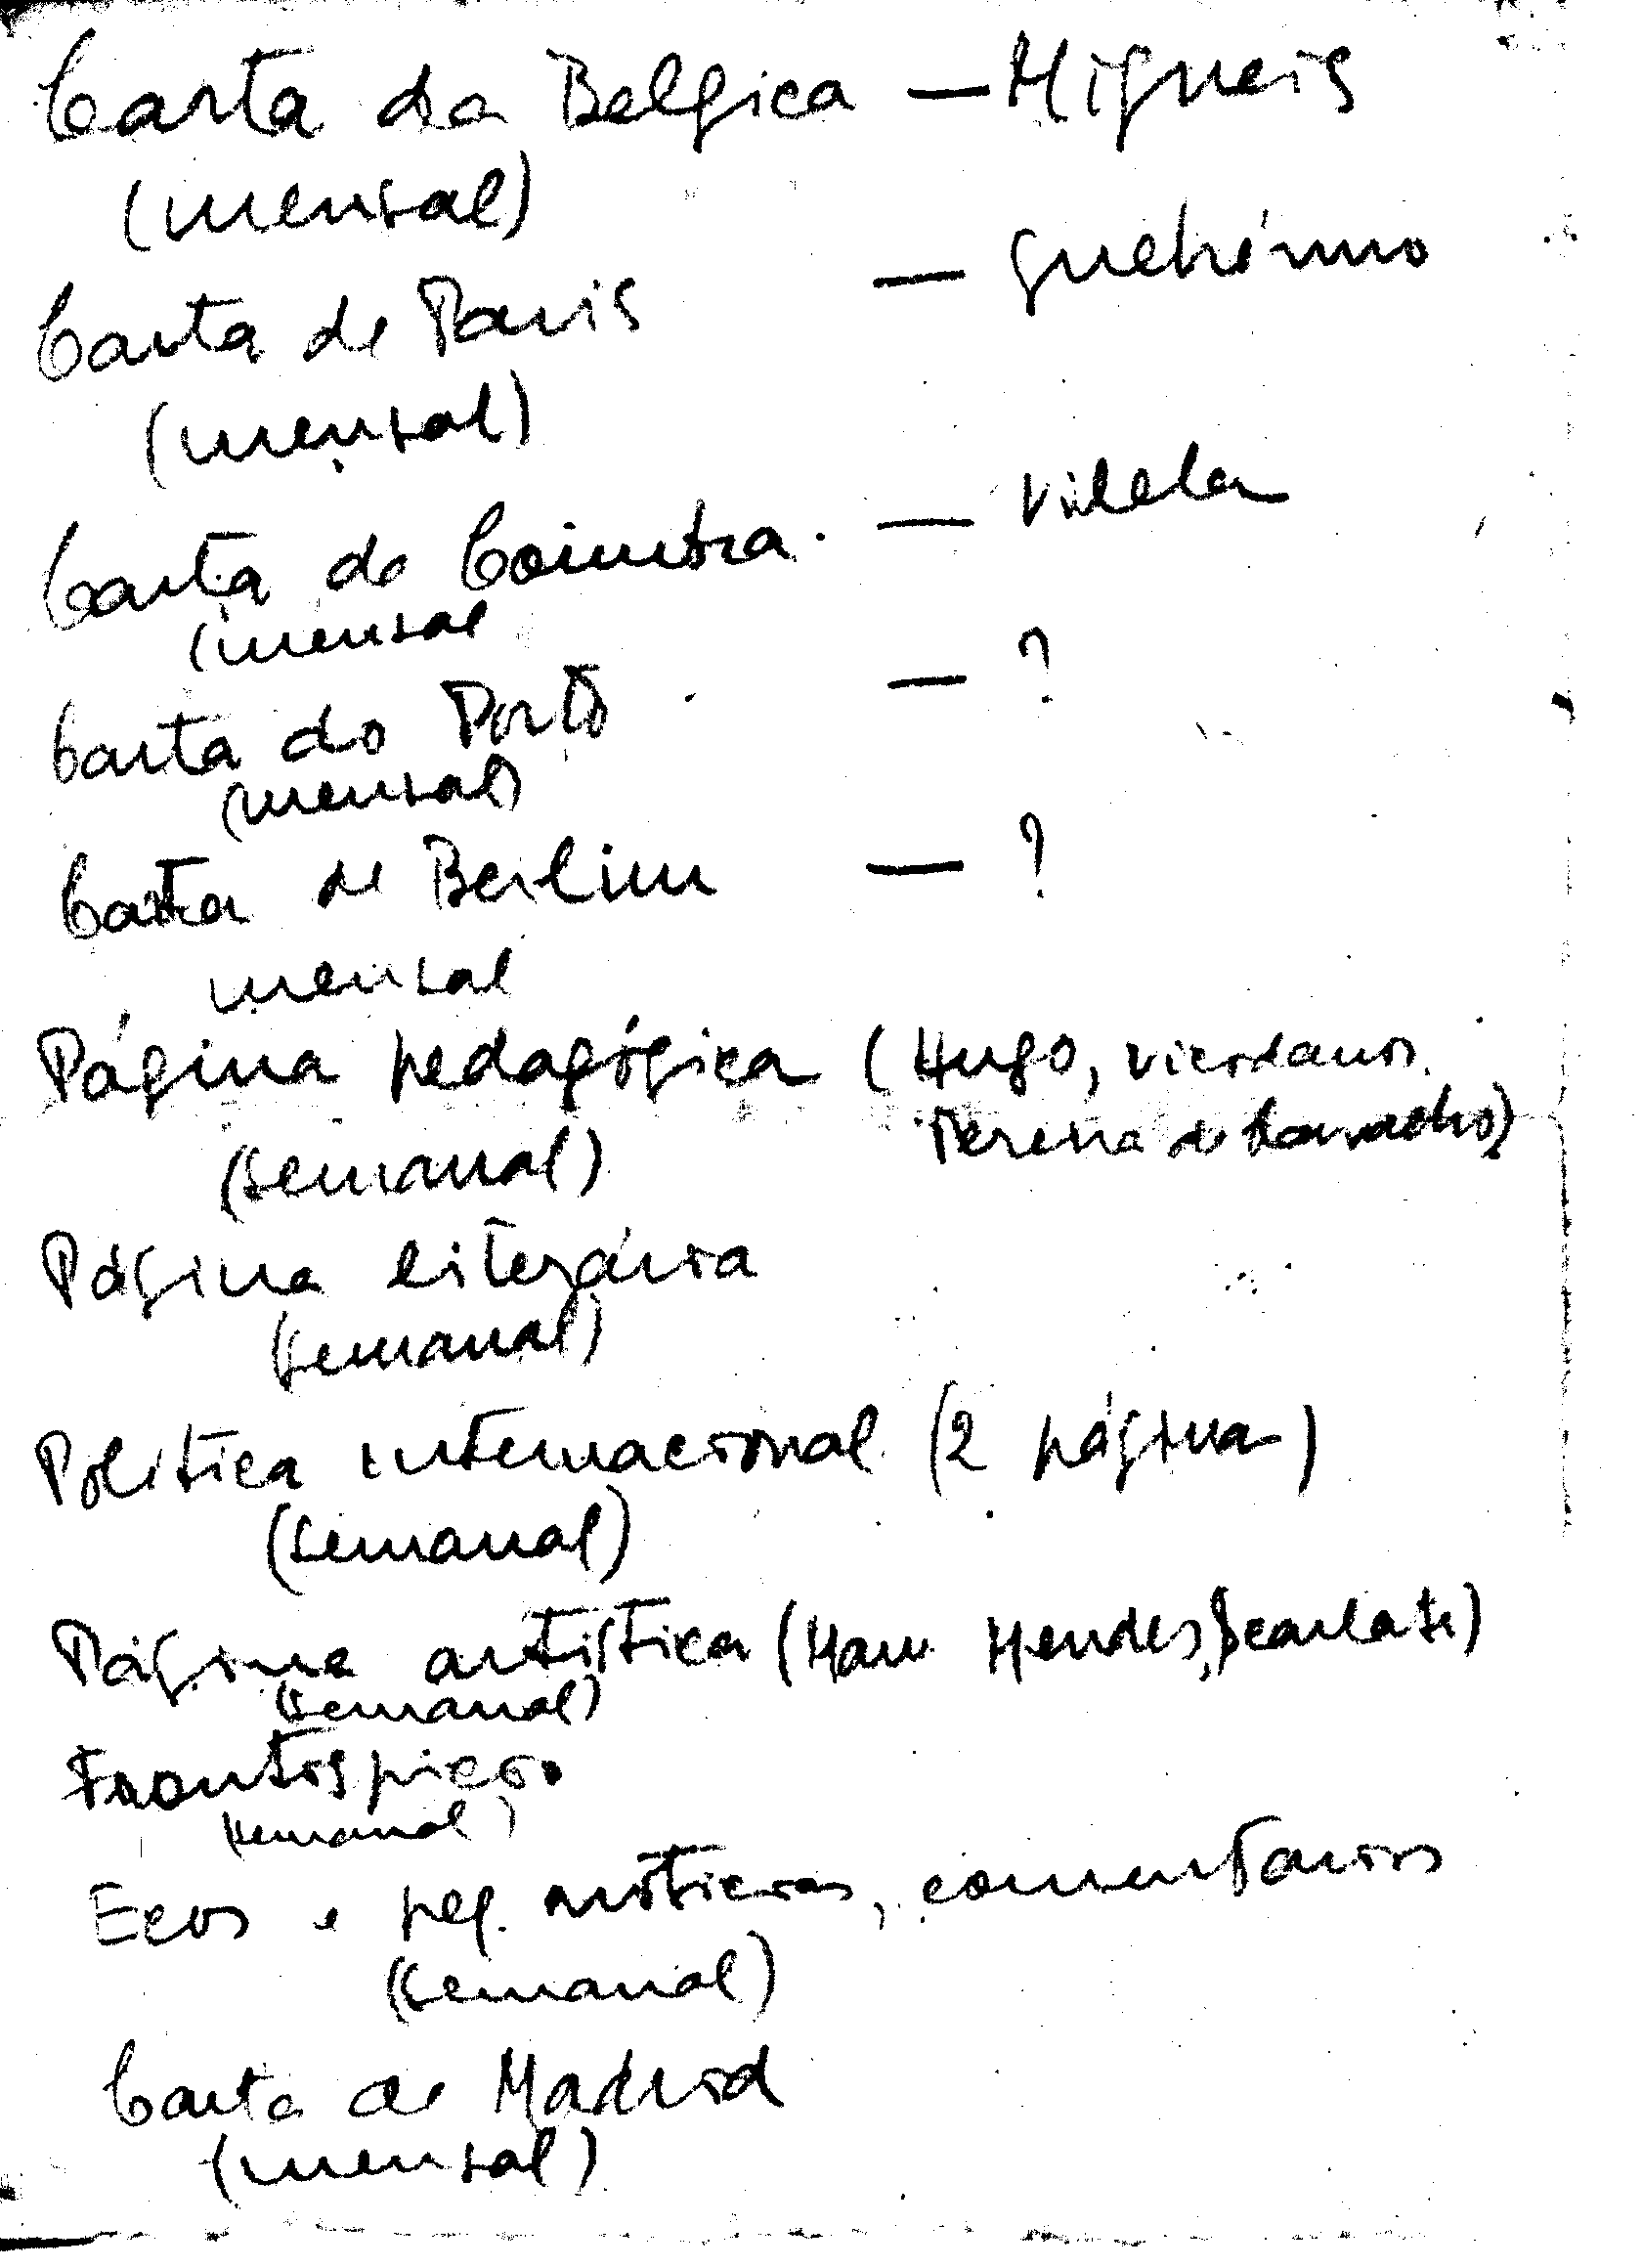 Carta da Belgica — Migueis
(mensal)
Carta de Paris — Guehénno
(mensal)
Carta de Coimbra. — Vilela
(mensal
Carta do Porto — ?
(mensal)
Carta de Berlim — ?
mensal
Página pedagógica (Hugo,
Pereira de
(semanal)
Página literária
(semanal)
Politica internacional (2 página)
(semanal)
Página artística (Man. Mendes, Scarlati)
(semanal)
Frontispicio
(semanal)
Ecos e peq. noticias, comentarios
(semanal)
Carta de Madrid
(mensal)